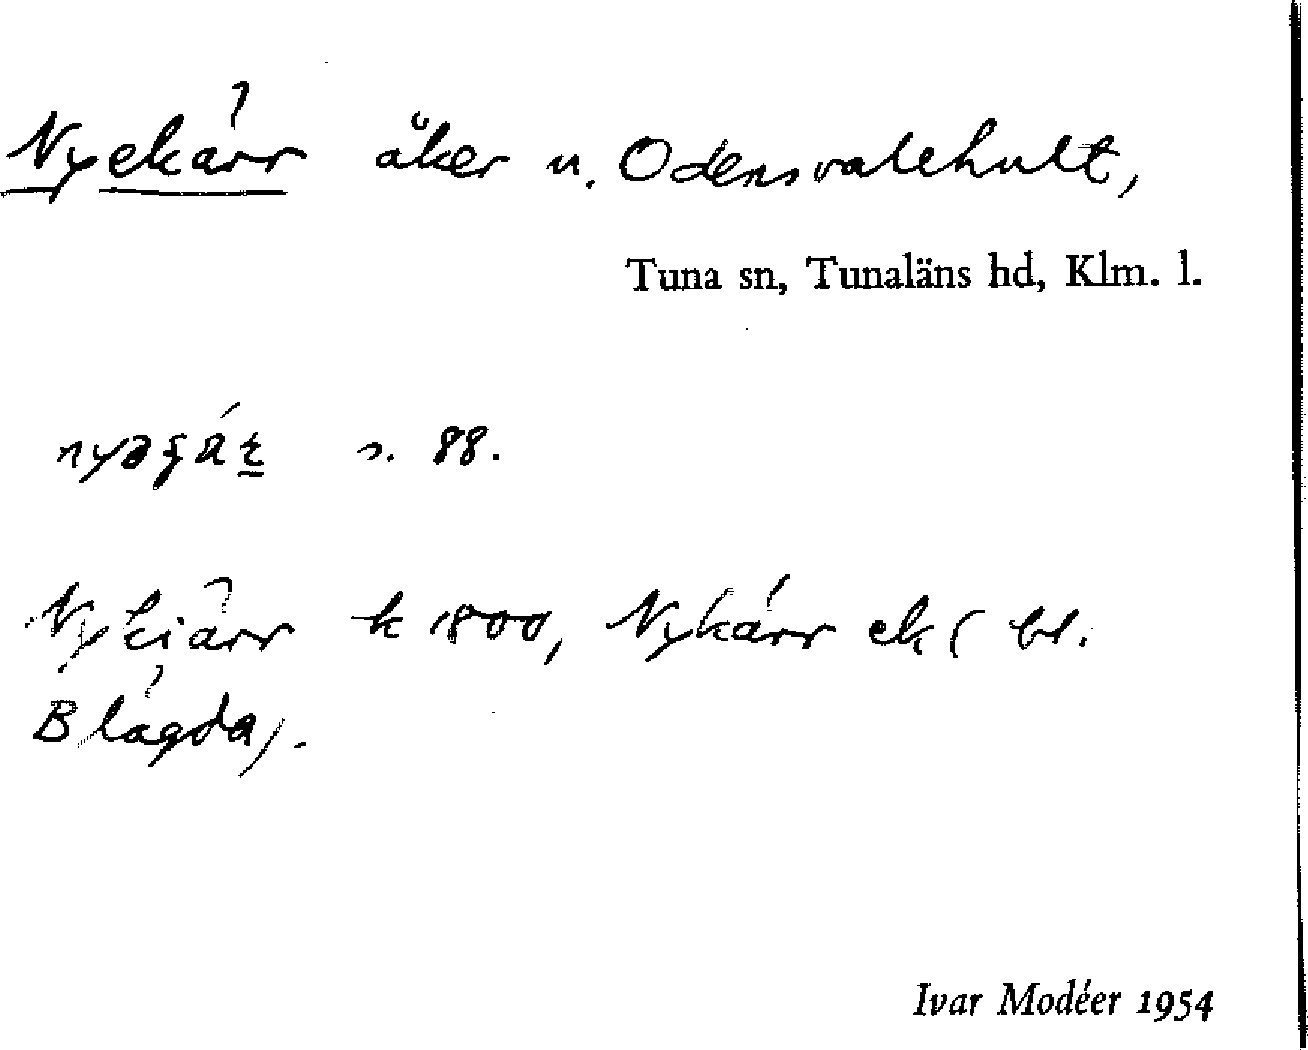 Nyekärr åker u. Odensvalehult,
Tuna sn, Tunaläns hd, Klm. l.
s. 88.
Nykiärr k 1800, Nykärr ek ( bl.
Blågda).
Ivar Modéer 1954